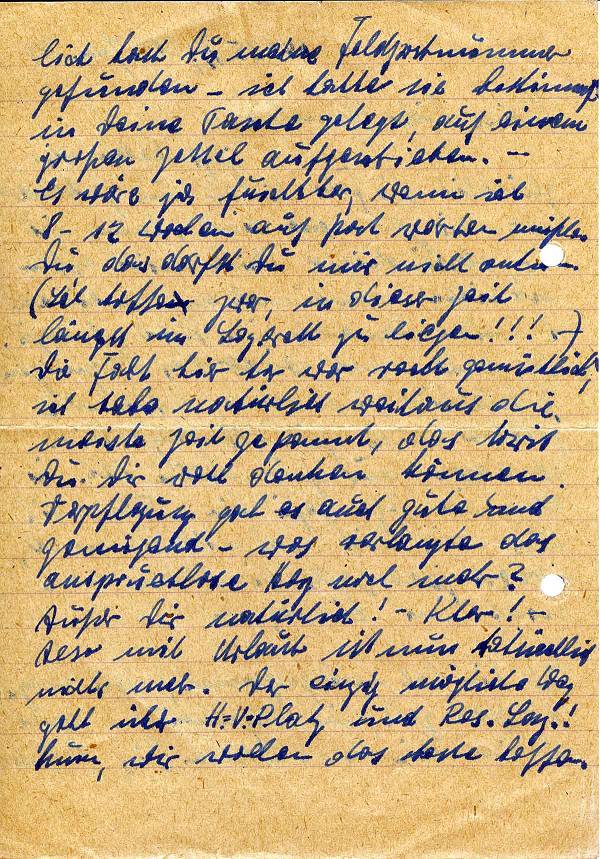 lich hast Du meine Feldpostnummer
gefunden – ich hatte sie bestimmt
in Deine Tasche gelegt, auf einem
großen Zettel aufgeschrieben. –
Es wäre ja furchtbar, wenn ich
8-12 Wochen auf Post warten müßte.
Du das darfst Du mir nicht antun.
(Ich hoffe zwar, in dieser Zeit
längst im Lazarett zu liegen!!! –)
Die Fahrt hier her war recht gemütlich,
ich habe natürlich weitaus die
meiste Zeit gepennt, das wirst
Du Dir wohl denken können.
Verpflegung gab es auch gute und
genügend – was verlangte das
anspruchslose Herz noch mehr?
Außer Dir natürlich! – Klar! –
Also mit Urlaub ist nun tatsächlich
nichts mehr. Der einzig mögliche Weg
geht über H.-V.-Platz und Res. Laz.!
Nun, wir wollen das beste hoffen.